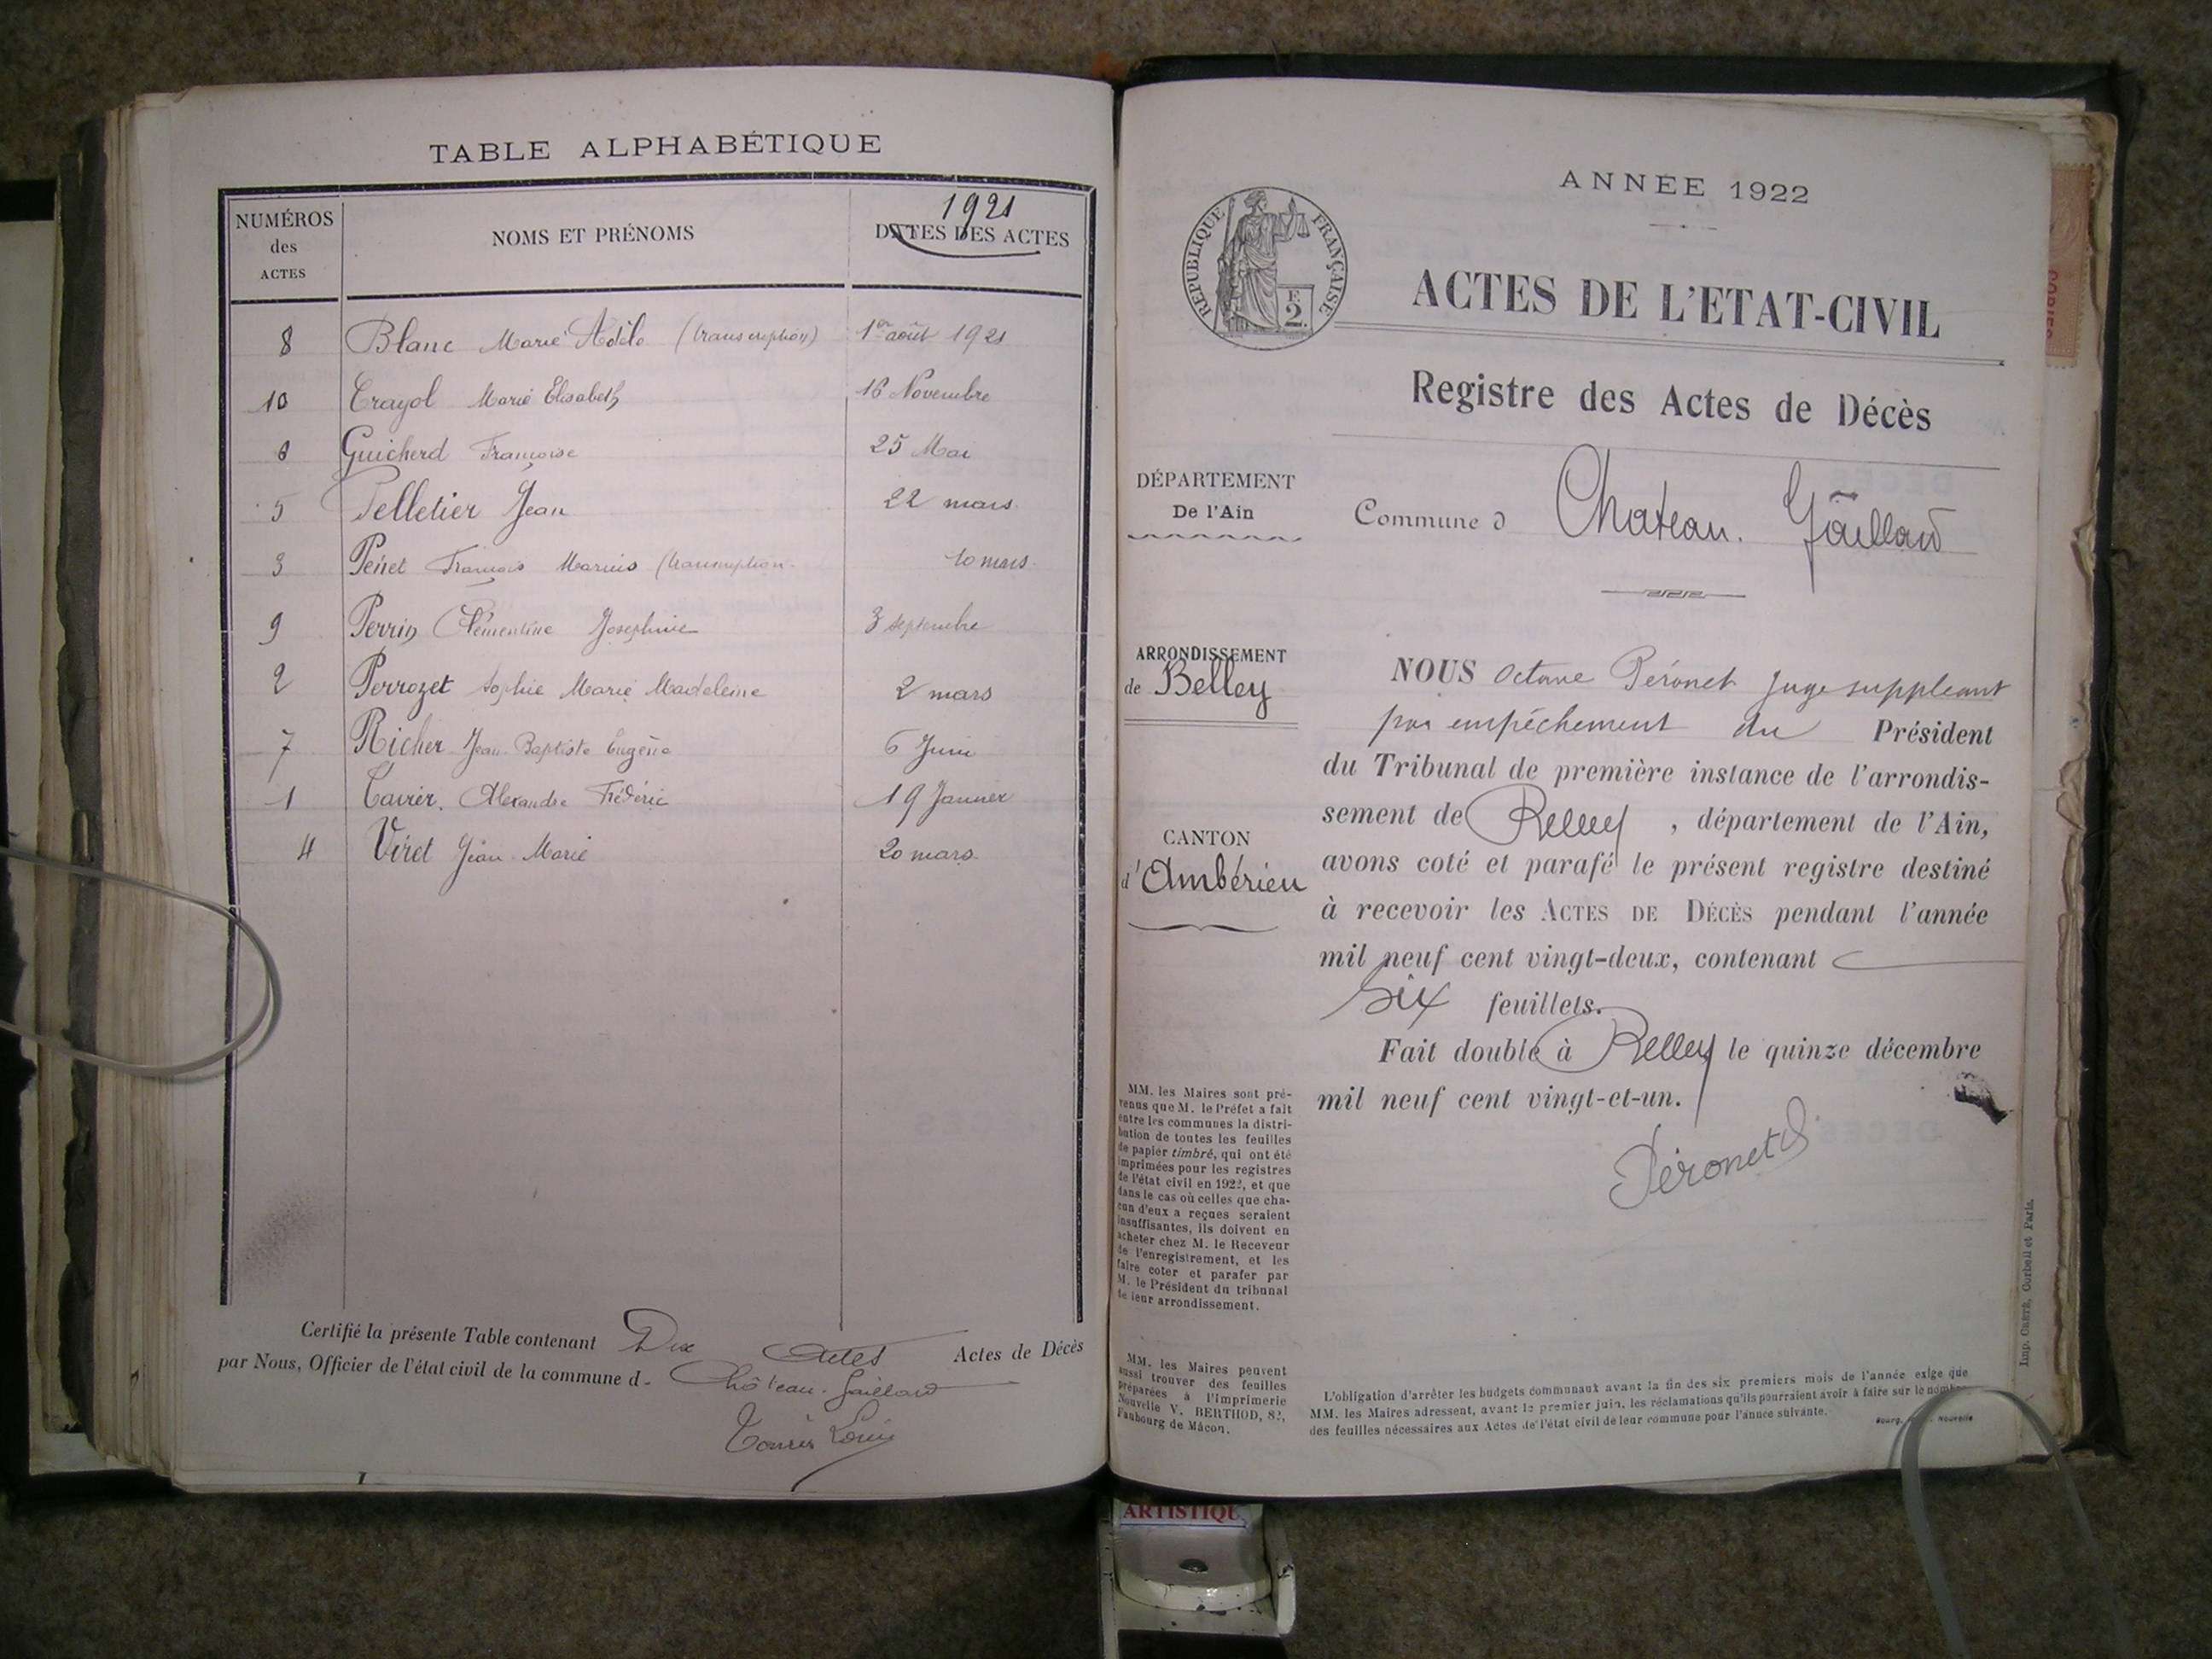 TABLE ALPHABÉTIQUE
NUMÉROS
des
ACTES
NOMS ET PRÉNOMS
1921
DATES DES ACTES
8 Blanc Marie Adèle (transcription) 1er août 1921
10 Crayol Marie Elisabeth 16 Novembre
6 Guicherd Françoise 25 Mai
5 Pelletier Jean 22 mars
3 François Marius (transcription 10 mars
9 Perrin Clémentine Josephine 3 septembre
2 Perrozet Sophie Marie Madeleine 2 mars
7 Richer Jean-Baptiste Eugène 6 Juin
1 Alexandre Frédéric 19 Janvier
4 Viret Jean-Marie 20 mars
Certifié la présente Table contenant Dix Actes Actes de Décès
par Nous, Officier de l'état civil de la commune d- Château-Gaillard
Louis
ANNÉE 1922
RÉPUBLIQUE FRANÇAISE
2.
ACTES DE L'ETAT-CIVIL
Registre des Actes de Décès
DÉPARTEMENT
De l'Ain
Commune d Chateau. Gaillard
ARRONDISSEMENT
de Belley
CANTON
d'Ambérieu
NOUS Octave Péronet juge suppleant
par empéchement du Président
du Tribunal de première instance de l'arrondis-
sement de Belley , département de l'Ain,
avons coté et parafé le présent registre destiné
à recevoir les ACTES DE DÉCÈS pendant l'année
mil neuf cent vingt-deux, contenant
six feuillets.
Fait double à Belley le quinze décembre
mil neuf cent vingt-et-un.
Péronet
MM. les Maires sont pré-
venus que M. le Préfet a fait
entre les communes la distri-
bution de toutes les feuilles
de papier timbré, qui ont été
imprimées pour les registres
de l'état civil en 1922, et que
dans le cas où celles que cha-
cun d'eux a reçues seraient
insuffisantes, ils doivent en
acheter chez M. le Receveur
de l'enregistrement, et les
faire coter et parafer par
M. le Président du tribunal
de leur arrondissement.
MM. les Maires peuvent
aussi trouver des feuilles
préparées à l'imprimerie
Nouvelle V. BERTHOD, 82,
Faubourg de Mâcon.
L'obligation d'arrêter les budgets communaux avant la fin des six premiers mois de l'année exige que
MM. les Maires adressent, avant le premier juin, les réclamations qu'ils pourraient avoir à faire sur le nombre
des feuilles nécessaires aux Actes de l'état civil de leur commune pour l'année suivante.
Bourg, Nouvelle
Imp. CRÉTÉ, Corbeil et Paris.
ARTISTIQU